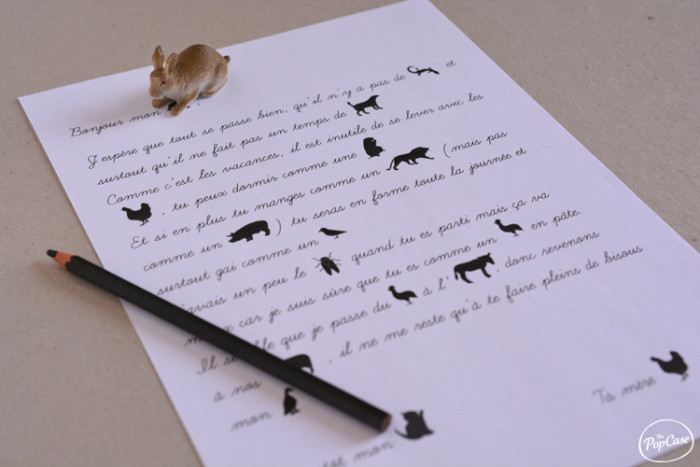 Bonjour mon
J'espère que tout se passe bien, qu'il n'y a pas de et
surtout qu'il ne fait pas un temps de
Comme c'est les vacances, il est inutile de se lever avec les
, tu peux dormir comme une
Et si en plus tu manges comme un (mais pas
comme un ) tu seras en forme toute la journée et
surtout gai comme un
avais un peu le quand tu es parti mais ça va
car je suis sûre que tu es comme un en pâte.
Il que je passe du à l' donc revenons
à nos , il ne me reste qu'à te faire pleins de bisous
mon
mon
Ta mère
The PopCase